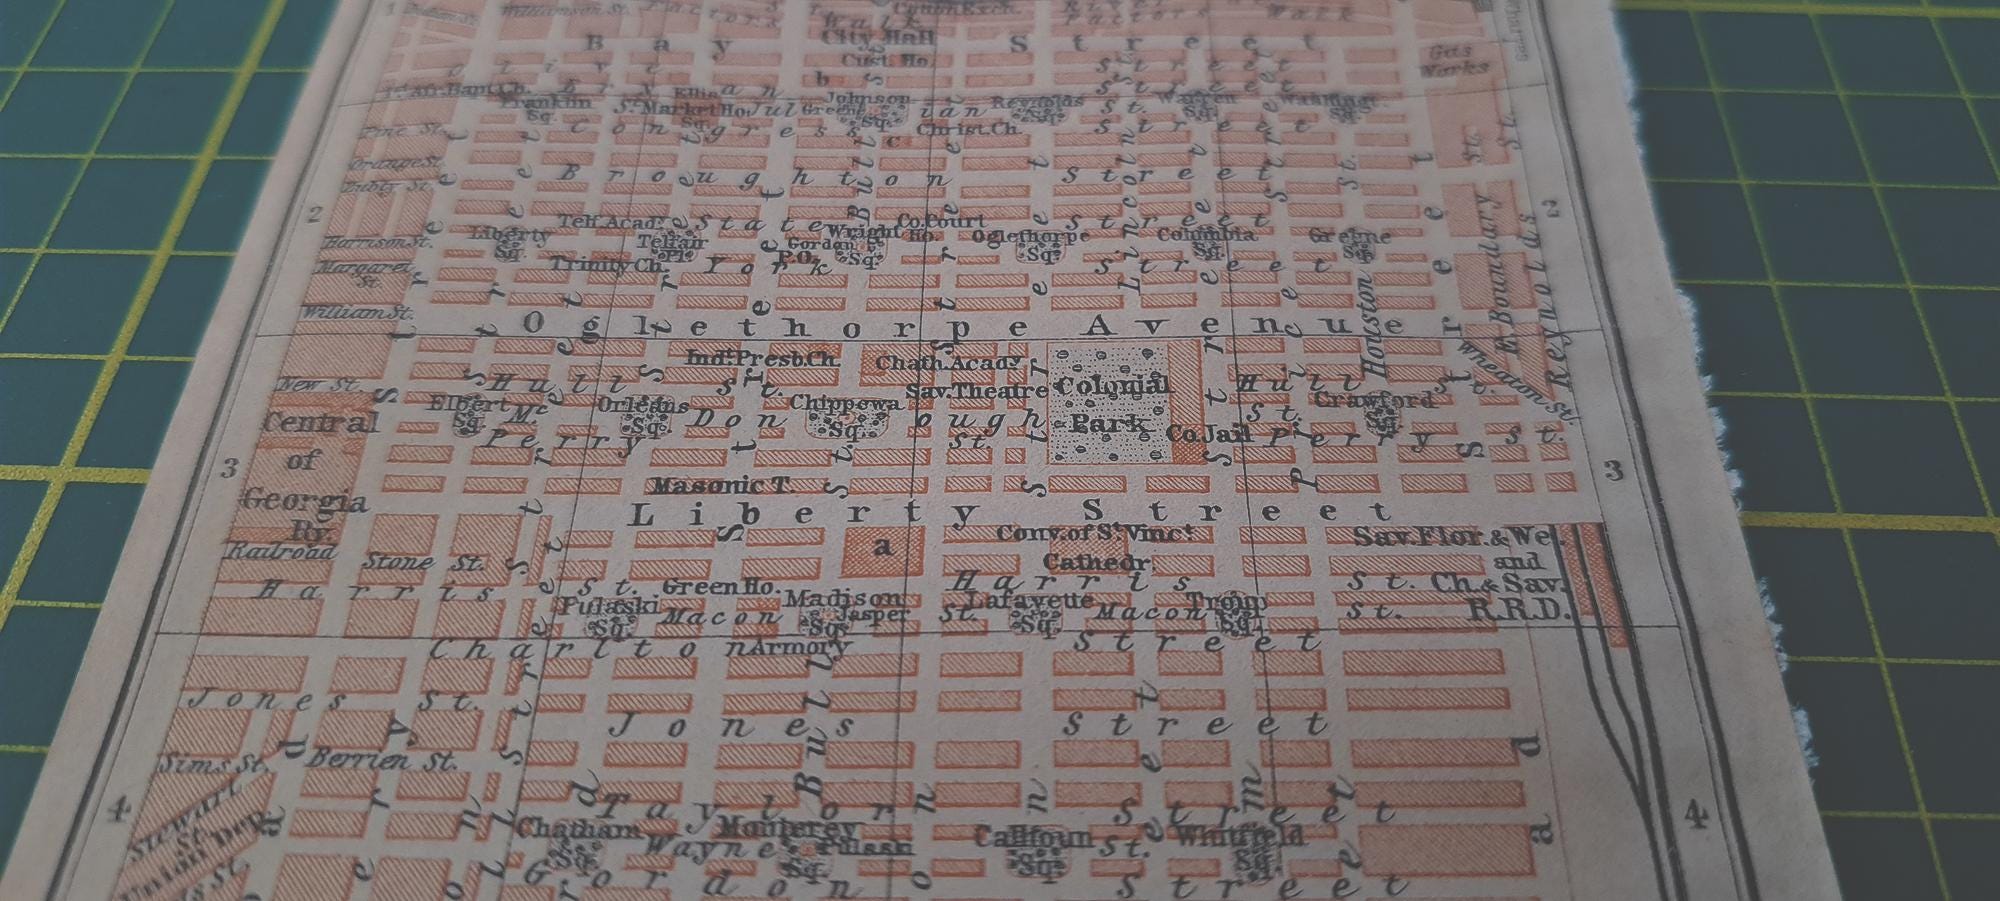 1
Williamson St.
Factors
Walk
Factors
Walk
City Hall
Bay Street
Cust. Ho.
Gas
Works
b
Bryan Street
Franklin
Sq.
Ellis
Sq.
Market Ho.
Julian St.
Johnson
Sq.
Greene
Reynolds
Sq.
Warren
Sq.
Washingt.
Sq.
Pine St.
Congress Street
Christ. Ch.
c
Orange St.
Broughton Street
2
2
Telf. Acad.
State Street
Co. Court
Ho.
Liberty
Sq.
Telfair
Pl.
Wright
Sq.
Gordon
Oglethorpe
Sq.
Columbia
Sq.
Greene
Sq.
Harrison St.
P.O.
Trinity Ch.
York Street
Margaret
St.
William St.
Oglethorpe Avenue
Ind. Presb. Ch.
Chath. Acady
New St.
Hull St.
Sav. Theatre
Colonial
Park
Hull St.
Wheaton St.
Houston St.
Lincoln Street
E. Boundary St.
Reynolds
Elbert
Sq.
Orleans
Sq.
Chippewa
Sq.
Crawford
Sq.
Mc Donough St.
Central
of
Georgia
Ry.
Perry
Co. Jail
Perry St.
3
3
Masonic T.
Liberty Street
Railroad
Stone St.
a
Conv. of St. Vinct.
Cathedr.
Sav. Flor. & We.
and
Ch. & Sav.
R.R.D.
Harris St.
Green Ho.
Harris St.
Pulaski
Sq.
Macon
Madison
Sq.
Jasper
St.
Lafayette
Sq.
Macon St.
Troup
Sq.
Charlton Street
Armory
Jones St.
Jones Street
Bull
Sims St.
Berrien St.
4
4
Stewart
St.
Union Dep.
Taylor Street
Chatham
Sq.
Wayne
Monterey
Sq.
Pulaski
Calhoun
Sq.
St.
Whitfield
Sq.
Gordon Street